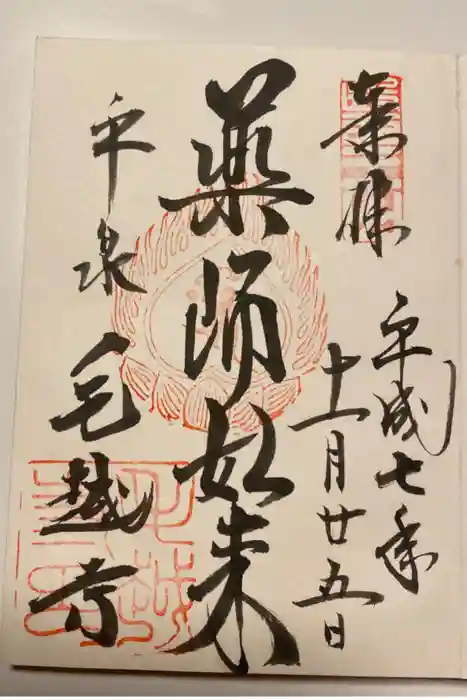 奉拝
平成七年
十一月廿五日
薬師如来
平泉 毛越寺